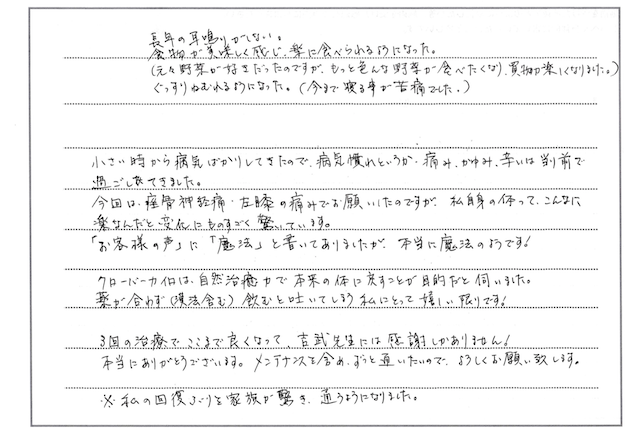 長年の耳鳴りがしない。
食物が美味しく感じ、楽に食べられるようになった。
(元々野菜が好きだったのですが、もっと色んな野菜が食べたくなり、買物が楽しくなりました。)
ぐっすりねむれるようになった。(今まで寝る事が苦痛でした.)
小さい時から病気ばかりしてきたので、病気慣れというか、痛み、かゆみ、辛いは当り前で
過ごしてきました。
今回は、座骨神経痛・左膝の痛みでお願いしたのですが、私自身の体って、こんなに
楽なんだと変化にものすごく驚いています。
「お客様の声」に「魔法」と書いてありましたが、本当に魔法のようです!
クローバーカイロは、自然治癒力で本来の体に戻すことが目的だと伺いました。
薬が合わず(漢法含む)飲むと吐いてしまう私にとって嬉しい限りです!
3回の治療で、ここまで良くなって、吉武先生には感謝しかありません!
本当にありがとうございます。メンテナンスを含め、ずっと通いたいので、よろしくお願い致します。
※私の回復ぶりを家族が驚き、通うようになりました。